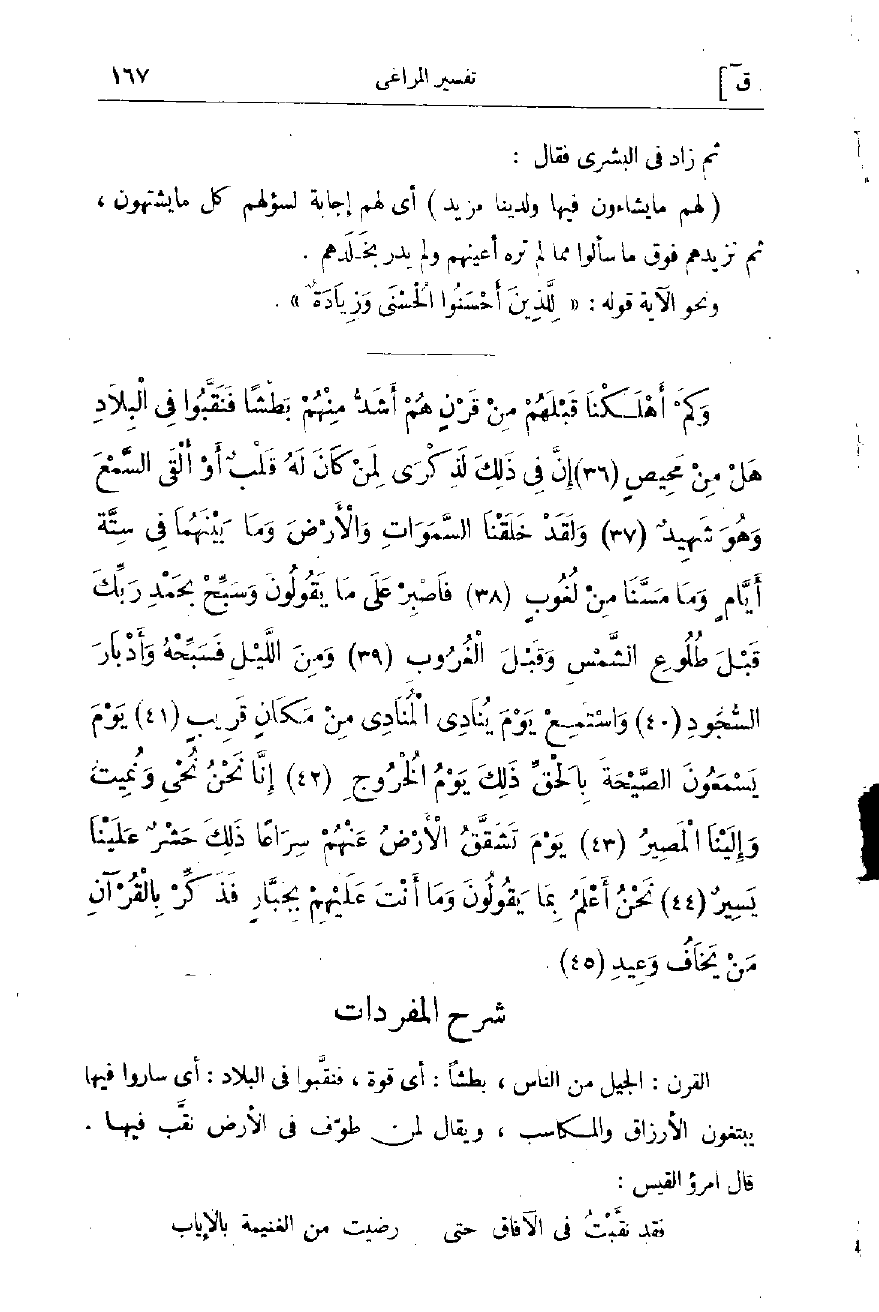 ق] تفسير المراغى ١٦٧
ثم زاد فى البشرى فقال :
( لهم مايشاءون فيها ولدينا مزيد ) أى لهم إجابة لسؤلهم كل مايشتهون ،
ثم نزيدهم فوق ماسألوا مما لم تره أعينهم ولم يدر بخَلَدهم .
ونحو الآية قوله : « لِلَّذِينَ أَحْسَنُوا الْحُسْنَى وَزِيَادَةٌ » .
وَكَمْ أَهْلَكْنَا قَبْلَهُمْ مِنْ قَرْنٍ هُمْ أَشَدُّ مِنْهُمْ بَطْشًا فَنَقَّبُوا فِى الْبِلَادِ
هَلْ مِنْ مَحِيصٍ (٣٦) إِنَّ فِى ذَلِكَ لَذِكْرَى لِمَنْ كَانَ لَهُ قَلْبٌ أَوْ أَلْقَى السَّمْعَ
وَهُوَ شَهِيدٌ (٣٧) وَلَقَدْ خَلَقْنَا السَّمَوَاتِ وَالْأَرْضَ وَمَا بَيْنَهُمَا فِى سِتَّةِ
أَيَّامٍ وَمَا مَسَّنَا مِنْ لُغُوبٍ (٣٨) فَاصْبِرْ عَلَى مَا يَقُولُونَ وَسَبِّحْ بِحَمْدِ رَبِّكَ
قَبْلَ طُلُوعِ الشَّمْسِ وَقَبْلَ الْغُرُوبِ (٣٩) وَمِنَ اللَّيْلِ فَسَبِّحْهُ وَأَدْبَارَ
السُّجُودِ (٤٠) وَاسْتَمِعْ يَوْمَ يُنَادِى الْمُنَادِى مِنْ مَكَانٍ قَرِيبٍ (٤١) يَوْمَ
يَسْمَعُونَ الصَّيْحَةَ بِالْحَقِّ ذَلِكَ يَوْمُ الْخُرُوجِ (٤٢) إِنَّا نَحْنُ نُحْيِ وَنُمِيتُ
وَإِلَيْنَا الْمَصِيرُ (٤٣) يَوْمَ تَشَقَّقُ الْأَرْضُ عَنْهُمْ سِرَاعًا ذَلِكَ حَشْرٌ عَلَيْنَا
يَسِيرٌ (٤٤) نَحْنُ أَعْلَمُ بِمَا يَقُولُونَ وَمَا أَنْتَ عَلَيْهِمْ بِجَبَّارٍ فَذَكِّرْ بِالْقُرْآنِ
مَنْ يَخَافُ وَعِيدِ (٤٥)
شرح المفردات
القرن : الجيل من الناس ، بطشاً : أى قوة ، فنقَّبوا فى البلاد : أى ساروا فيها
يبتغون الأرزاق والمكاسب ، ويقال لمن طوّف فى الأرض نقَّب فيها .
قال امرؤ القيس :
فقد نقَّبْتُ فى الآفاق حتى رضيت من الغنيمة بالإياب